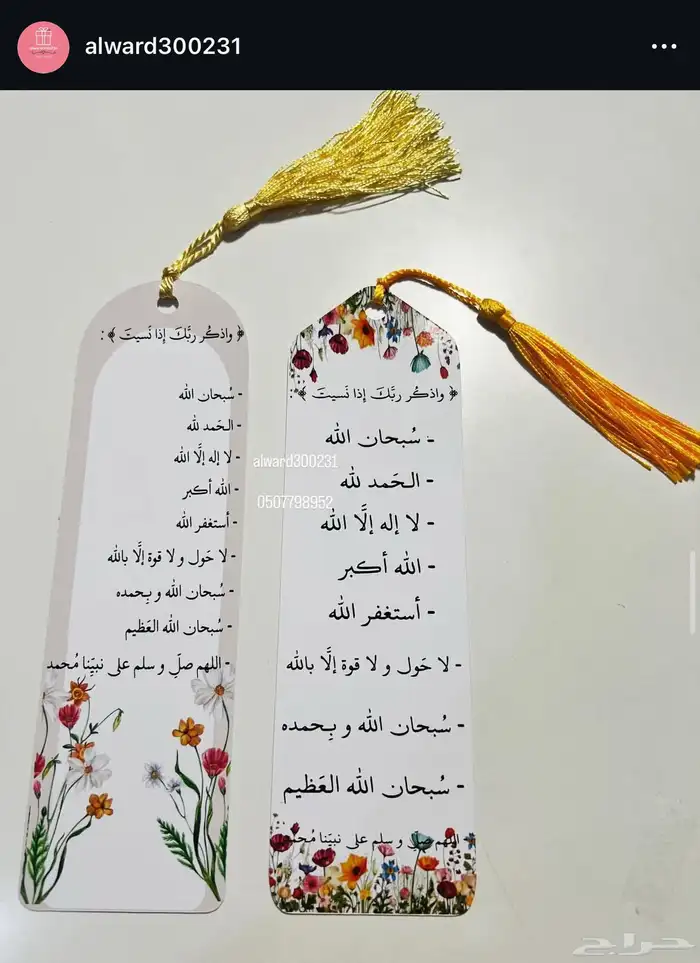 alward300231
﴿ واذكُر ربَّكَ إذا نَسيتَ ﴾ :
- سُبحان الله
- الـحَمد لله
- لا إله إلَّا الله
- الله أكبر
- أستغفر الله
- لا حَول و لا قوة إلَّا بالله
- سُبحان الله و بِـحمده
- سُبحان الله العَظيم
- اللهم صلِّ و سلم على نبيّنا مُحمد
alward300231
0507798952
﴿ واذكُر ربَّكَ إذا نَسيتَ ﴾ :
- سُبحان الله
- الـحَمد لله
- لا إله إلَّا الله
- الله أكبر
- أستغفر الله
- لا حَول و لا قوة إلَّا بالله
- سُبحان الله و بِـحمده
- سُبحان الله العَظيم
- اللهم صلِّ و سلم على نبيّنا مُحمد
حراج